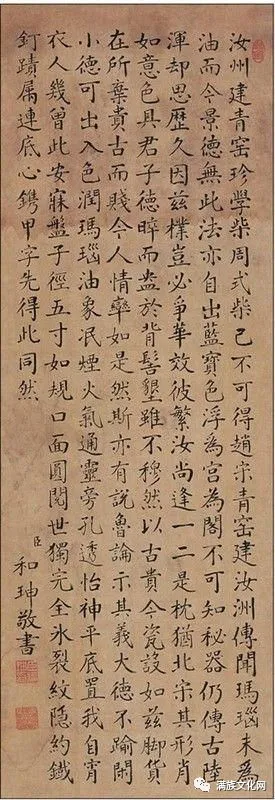 汝州建青窑珍學柴周式柴已不可得趙宋青窑建汝洲傳聞瑪瑙末為
油而今景德無此法亦自出藍寶色浮為宫為閣不可知秘器仍傳古陸
渾却思歷久因兹樸豈必爭華效彼繁汝尚逢一二是枕猶北宗其形肖
如意色具君子德睟而盎於背髻墾雖不穆然以古貴今瓷設如兹脚貨
在所棄貴古而賤今人情率如是然斯亦有説魯論示其義大德不踰閑
小德可出入色潤瑪瑙油象泯煙火氣通靈旁孔透怡神平底置我自宵
衣人幾曾此安寐盤子徑五寸如規口面圓閱世獨完全氷裂紋隱約鐵
釘蹟属連底心鎸甲字先得此同然
臣和珅敬書
满族文化网